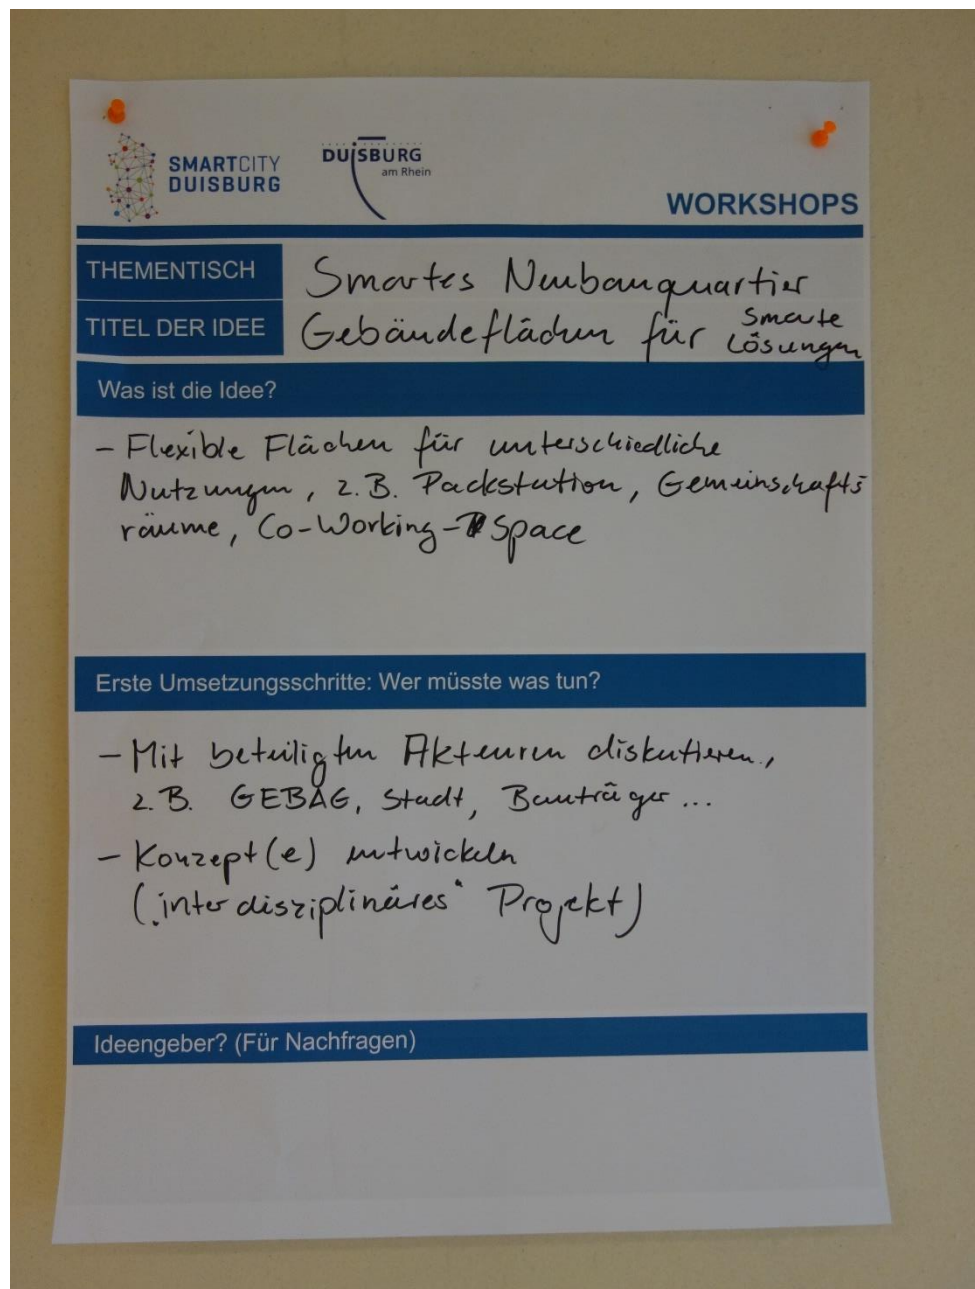 SMARTCITY
DUISBURG
DUISBURG
am Rhein
WORKSHOPS
THEMENTISCH
Smartes Neubauquartier
TITEL DER IDEE
Gebäudeflächen für smarte
Lösungen
Was ist die Idee?
- Flexible Flächen für unterschiedliche
Nutzungen, z.B. Packstation, Gemeinschafts
räume, Co-Working-Space
Erste Umsetzungsschritte: Wer müsste was tun?
- Mit beteiligten Akteuren diskutieren,
z.B. GEBAG, Stadt, Bauträger ...
- Konzept(e) entwickeln
("interdisziplinäres" Projekt)
Ideengeber? (Für Nachfragen)